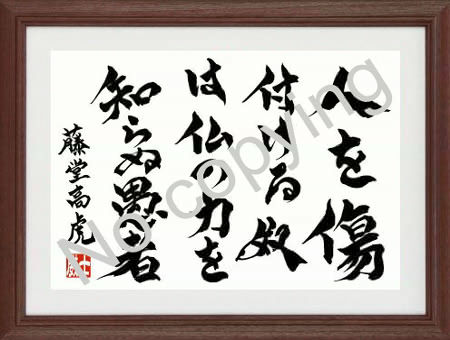 人を傷
付ける奴
は仏の力を
知らぬ愚者
藤堂高虎
No copying